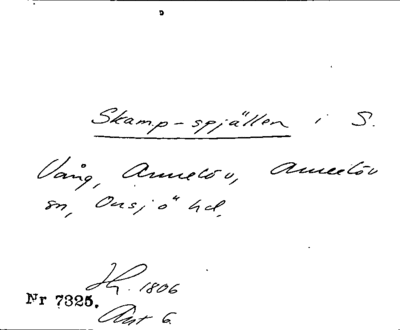 Skamp-spjällen i S.
Vång, Annelöv, Annelöv
sn, Onsjö hd.
Jh. 1806
Nr 7325.
Akt 6.